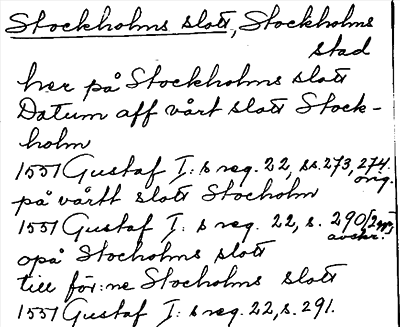 Stockholms slott, Stockholms
stad
her på Stockholms slott
Datum aff vårt slott Stock-
holm
1551 Gustaf I: s reg. 22, ss. 273, 274.
orig.
på vårtt slott Stocholm
1551 Gustaf I: s reg. 22, s. 290 [2 ggr]
avskr.
opå Stocholms slott
till för:ne Stocholms slott
1551 Gustaf I: s reg. 22, s. 291.